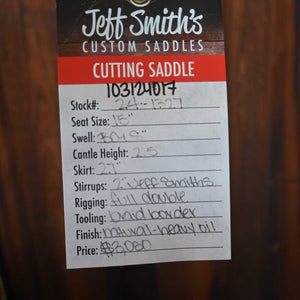 Jeff Smith's
CUSTOM SADDLES
CUTTING SADDLE
103124017
Stock#: 24-1327
Seat Size: 15"
Swell: 9"
Cantle Height: 2.5"
Skirt: 27"
Stirrups: 2" Jeff Smiths
Rigging: full double
Tooling: braid border
Finish: natural-heavy oil
Price: $3,080